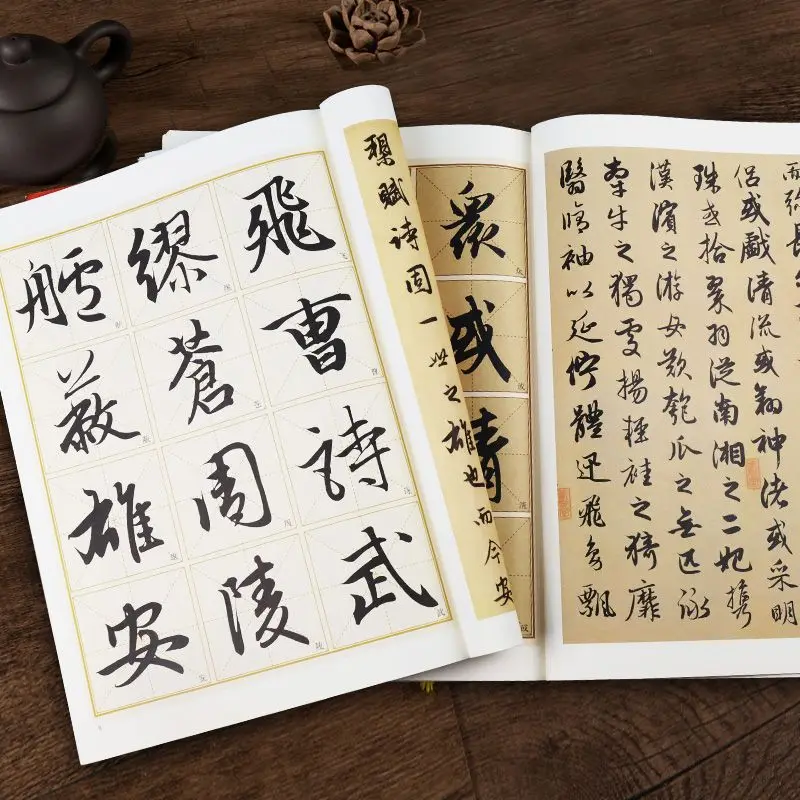 飛曹詩武
繆蒼周陵
艫蔽雄安
槊賦詩固一世之雄也而今安
眾或清
侶或戲清流或翔神渚或采明
珠或拾翠羽從南湘之二妃攜
漢濱之游女歎匏瓜之無匹詠
牽牛之獨處揚輕袿之猗靡
翳脩袖以延佇體迅飛鳧飄